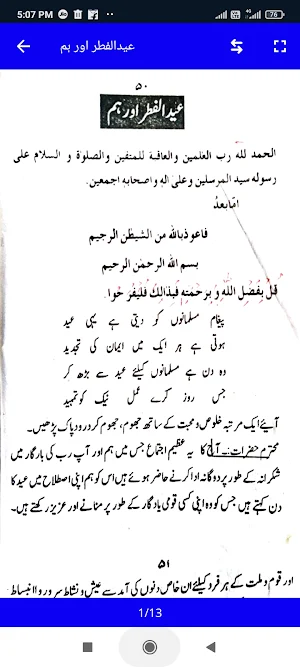 5:07 PM
76
عیدالفطر اور ہم
۵۰
عید الفطر اور ہم
الحمد لله رب العلمين والعاقبة للمتقين والصلوة و السلام على
رسوله سيد المرسلين وعلى اله واصحابه اجمعين.
امابعدُ
فاعوذبالله من الشيطن الرجيم
بسم الله الرحمن الرحيم
قُلْ بِفَضْلِ اللّٰهِ وَ بِرَحْمَتِهٖ فَبِذَالِكَ فَلْيَفْرَحُوا.
پیغام مسلمانوں کو دیتی ہے یہی عید
ہوتی ہے ہر ایک میں ایمان کی تجدید
وہ دن ہے مسلمانوں کیلئے عید سے بڑھ کر
جس روز کرے عمل نیک کو تمہید
آیئے ایک مرتبہ خلوص و محبت کے ساتھ جھوم، جھوم کر درود پاک پڑھیں۔
محترم حضرات:۔ آج کا یہ عظیم اجتماع جس میں ہم اور آپ رب کی بارگاہ میں
شکرانہ کے طور پر دوگانہ ادا کرنے حاضر ہوئے ہیں اس کو ہم اپنی اصطلاح میں عید کا
دن کہتے ہیں جس کو وہ اپنی کسی قومی یادگار کے طور پر منانے اور عزیز رکھتے ہیں۔
۵۱
اور قوم و ملت کے ہر فرد کیلئے ان خاص دنوں کی آمد سے عیش و نشاط سرور و انبساط
1/13